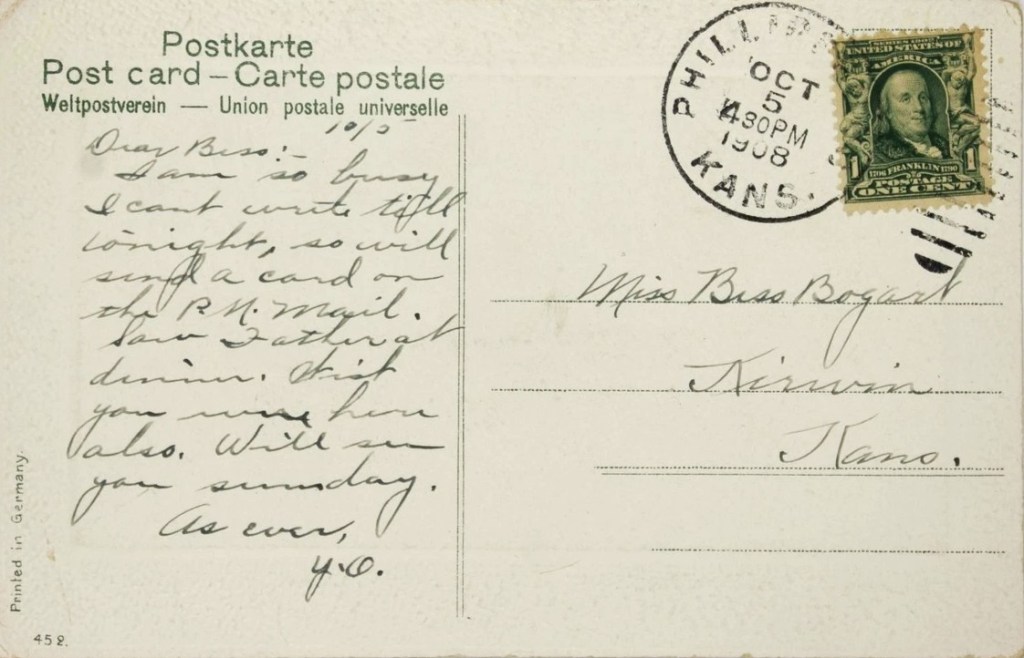 Postkarte
Post card – Carte postale
Weltpostverein — Union postale universelle
10/5
Dear Bess:-
I am so busy
I cant write till
tonight, so will
send a card on
the R.N. Mail.
Saw Father at
dinner. Wish
you were here
also. Will see
you sunday.
As ever,
Y.O.
PHILLIPS
OCT
5
430PM
1908
KANS.
SERIES 1902
UNITED STATES OF
AMERICA
1 1
1706 FRANKLIN 1790
POSTAGE
ONE CENT
Miss Bess Bogart
Kirwin
Kans.
Printed in Germany.
452.